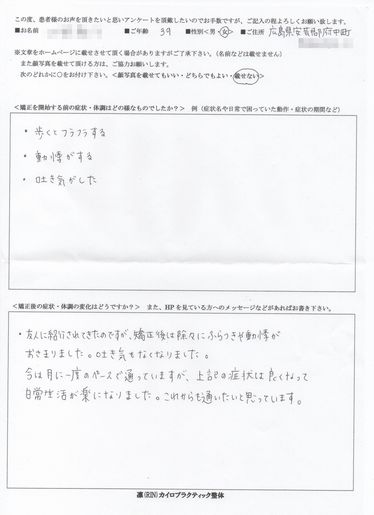 この度、患者様のお声を頂きたいと思いアンケートを頂戴したいのでお手数ですが、ご記入の程よろしくお願い致します。
■お名前 ■ご年齢 39 ■性別<男・女> ■ご住所 広島県安芸郡府中町
※文章をホームページに載せさせて頂く場合がありますがご了承下さい。(名前などは載せません)
また顔写真を載せて頂ける方は、ご協力お願いします。
次のどれかに○をお付け下さい。<顔写真を載せてもいい・どちらでもよい・載せない>
<矯正を開始する前の症状・体調はどの様なものでしたか?> 例(症状名や日常で困っていた動作・症状の期間など)
・歩くとフラフラする
・動悸がする
・吐き気がした
<矯正後の症状・体調の変化はどうですか?> また、HPを見ている方へのメッセージなどがあればお書き下さい。
・友人に紹介されてきたのですが、矯正後は除々にふらつきや動悸が
おさまりました。吐き気もなくなりました。
今は月に一度のペースで通っていますが、上記の症状は良くなって
日常生活が楽になりました。これからも通いたいと思っています。
凛(RIN)カイロプラクティック整体